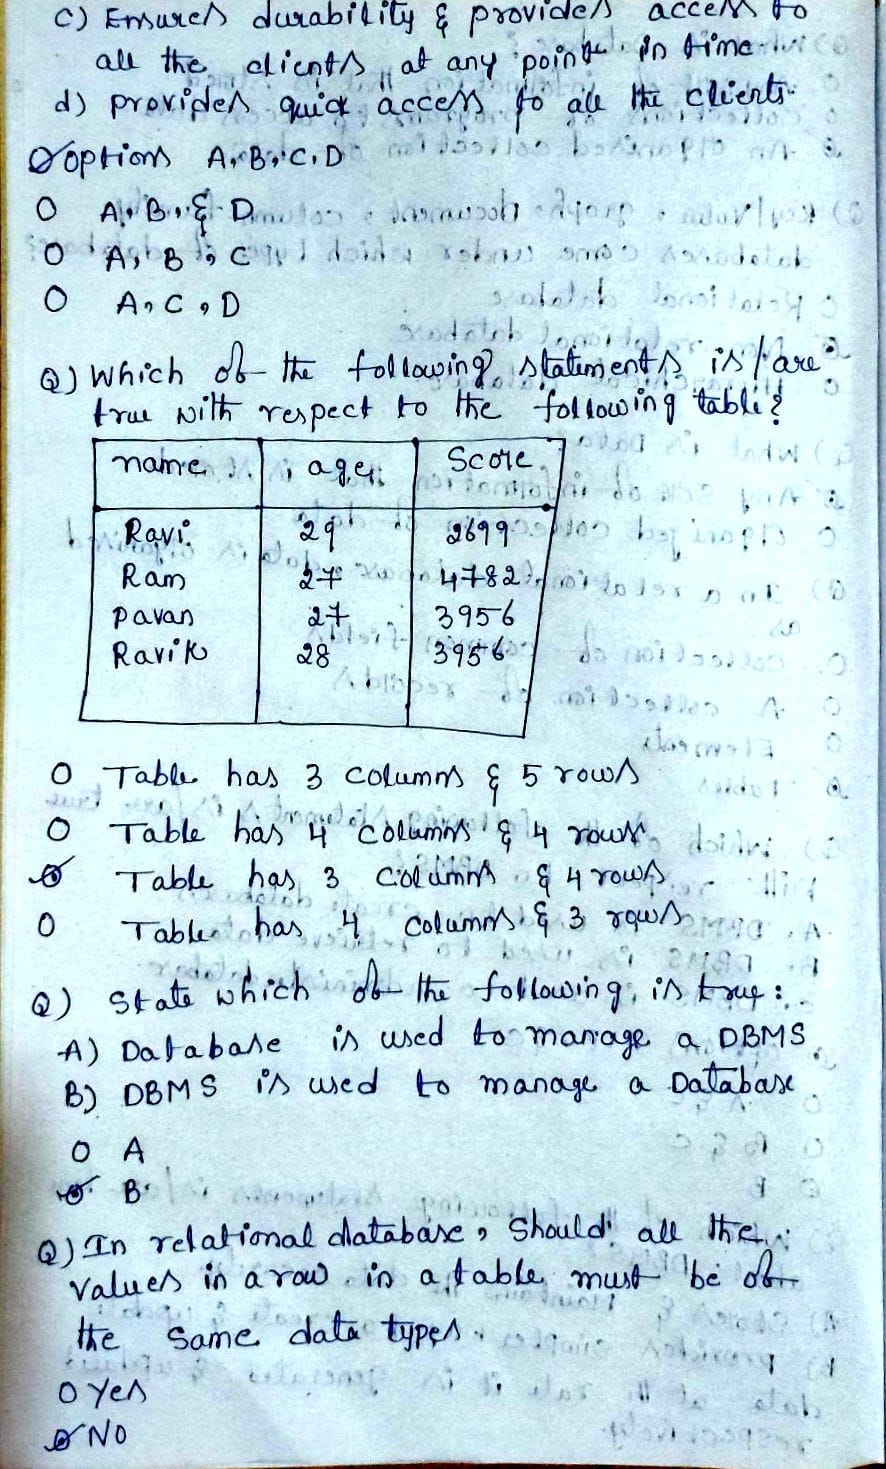 c) Ensures durability & provides access to
all the clients at any point in time
d) provides quick access to all the clients.
options A, B, C, D
O A, B, & D
O A, B, C
O A, C, D
Q) Which of the following statements is/are
true with respect to the following table?
name age Score
Ravi 29 2699
Ram 27 4782
pavan 27 3956
Ravik 28 3956
O Table has 3 columns & 5 rows
O Table has 4 columns & 4 rows
Table has 3 columns & 4 rows
O Table has 4 columns & 3 rows
Q) State which of the following is true:
A) Database is used to manage a DBMS
B) DBMS is used to manage a Database
O A
B
Q) In relational database, Should all the
values in a row in a table must be of
the same data types.
O Yes
NO